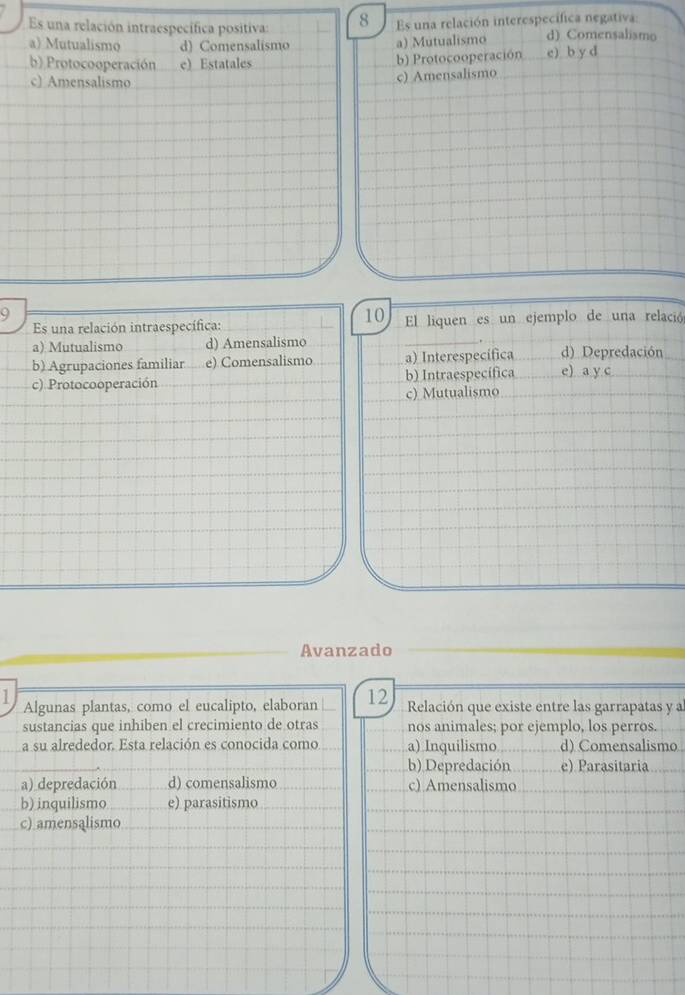 7
Es una relación intraespecífica positiva:
a) Mutualismo d) Comensalismo
b) Protocooperación e) Estatales
c) Amensalismo
8
Es una relación interespecífica negativa:
a) Mutualismo d) Comensalismo
b) Protocooperación e) b y d
c) Amensalismo
9
Es una relación intraespecífica:
a) Mutualismo d) Amensalismo
b) Agrupaciones familiar e) Comensalismo
c) Protocooperación
10
El liquen es un ejemplo de una relació
.
a) Interespecífica d) Depredación
b) Intraespecífica e) a y c
c) Mutualismo
Avanzado
1
Algunas plantas, como el eucalipto, elaboran
sustancias que inhiben el crecimiento de otras
a su alrededor. Esta relación es conocida como
.
a) depredación d) comensalismo
b) inquilismo e) parasitismo
c) amensalismo
12
Relación que existe entre las garrapatas y al
nos animales; por ejemplo, los perros.
a) Inquilismo d) Comensalismo
b) Depredación e) Parasitaria
c) Amensalismo